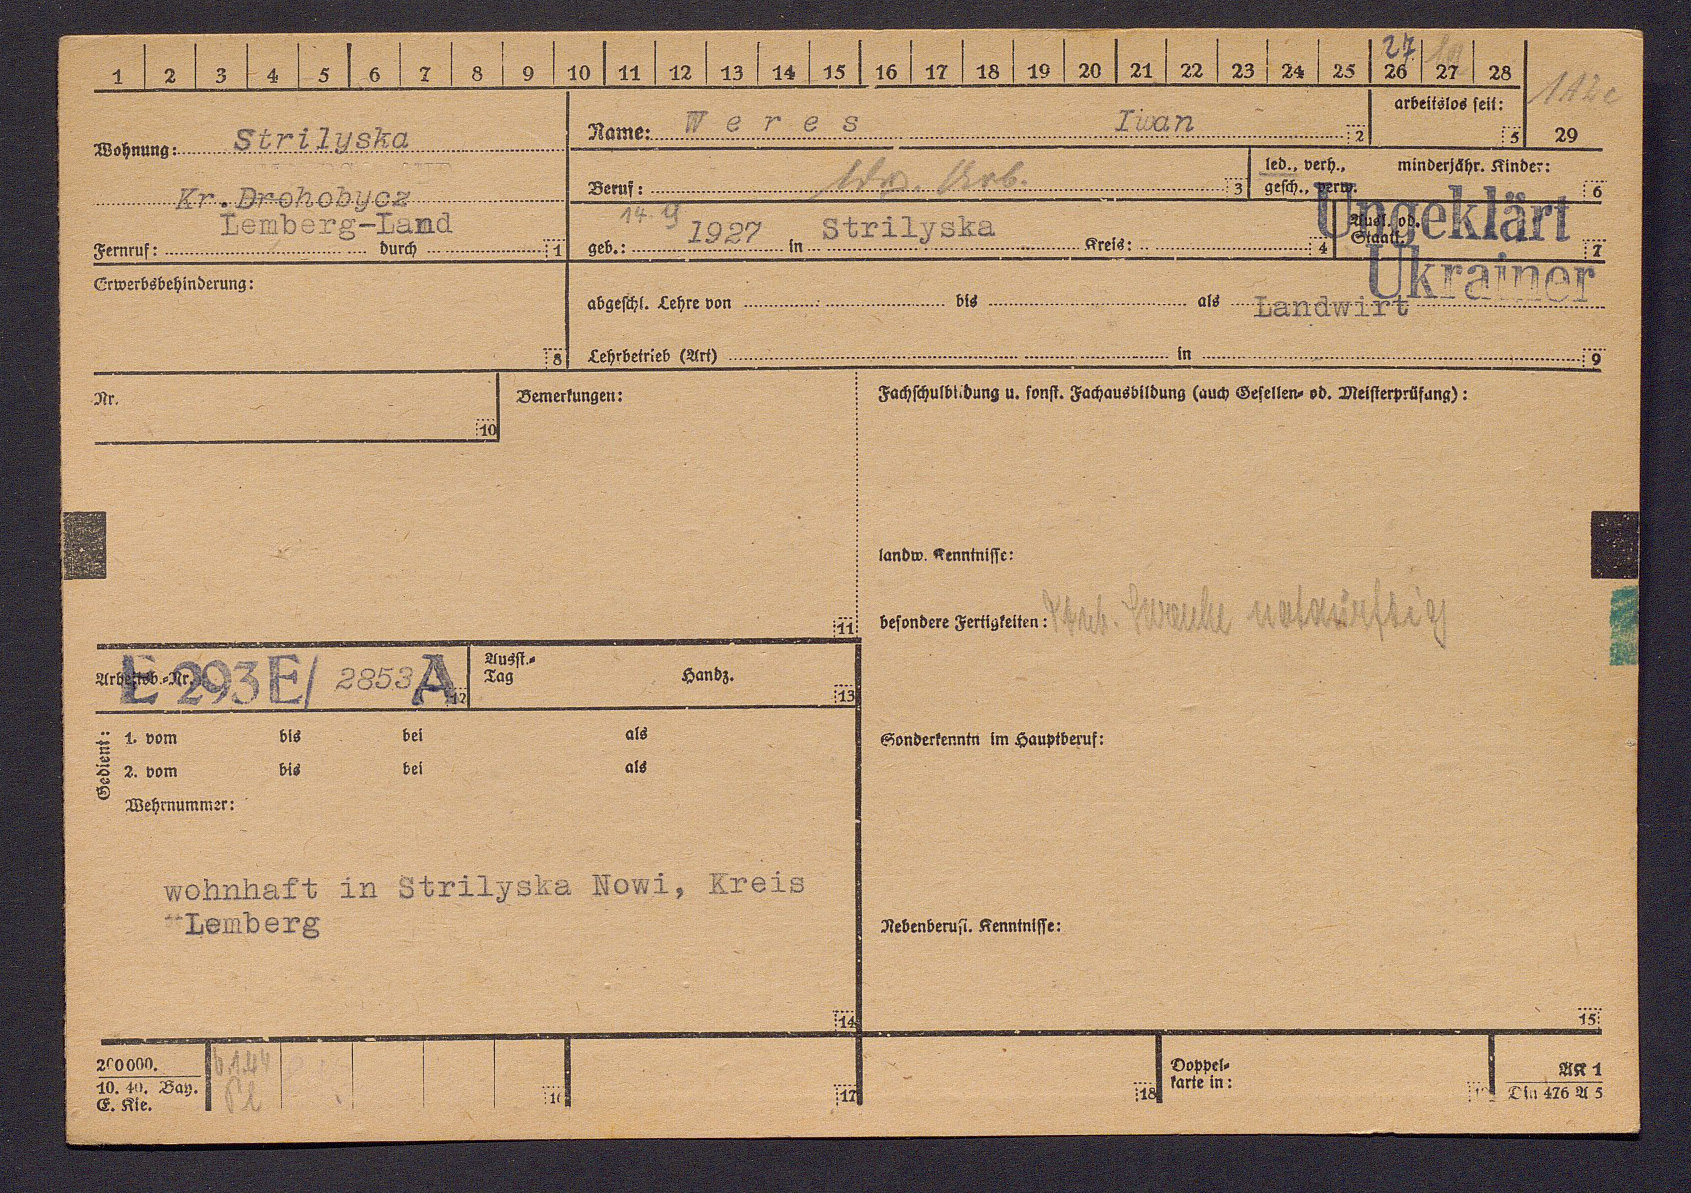 1 2 3 4 5 6 7 8 9 10 11 12 13 14 15 16 17 18 19 20 21 22 23 24 25 26 27 28
27.
112c
arbeitslos seit:
5 29
Wohnung: Strilyska
Name: Weres Iwan 2
Kr. Drohobycz
Beruf: 3
led., verh.,
gesch., verw.
minderjähr. Kinder:
6
Lemberg-Land
Fernruf: durch 1
14. 9 1927 Strilyska
geb.: in Kreis: 4
Ausl. od.
Staatl.
7
Ungeklärt
Ukrainer
Erwerbsbehinderung:
8
abgeschl. Lehre von bis als Landwirt
Lehrbetrieb (Art) in 9
Nr.
10
Bemerkungen:
11
Fachschulbildung u. sonst. Fachausbildung (auch Gesellen- od. Meisterprüfung):
landw. Kenntnisse:
besondere Fertigkeiten: notdürftig
Arbeitsb.-Nr. E 293 E/ 2853 A 12
Ausst.-
Tag
Handz.
13
Sonderkenntn im Hauptberuf:
Gedient:
1. vom bis bei als
2. vom bis bei als
Wehrnummer:
wohnhaft in Strilyska Nowi, Kreis
Lemberg
14
Nebenberufl. Kenntnisse:
15
200000.
10. 40. Bay.
E. Kle.
16
17
18
Doppel-
karte in:
19
AK 1
Din 476 A 5